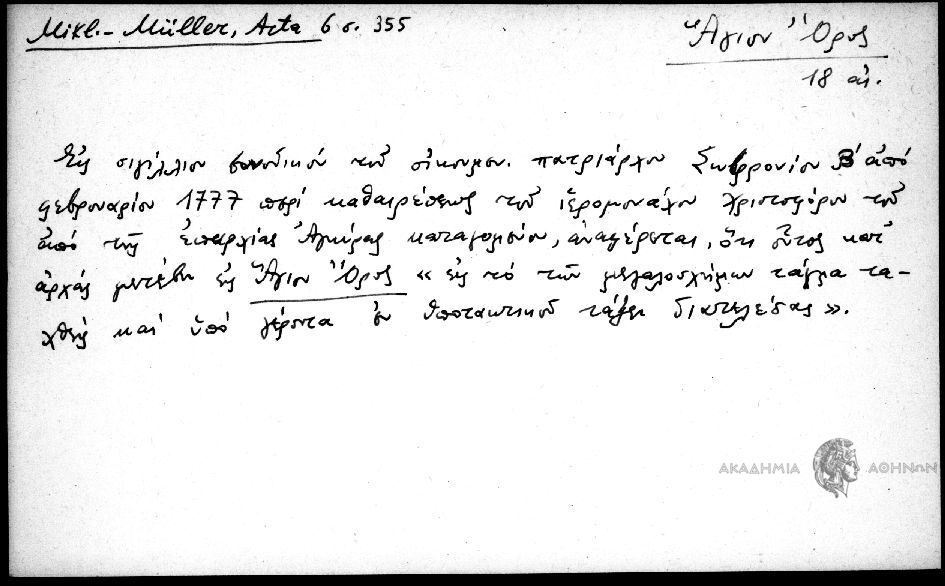 Mikl.- Müller, Acta 6 σ. 355
Ἅγιον Ὄρος
18 αἰ.
Εἰς σιγίλλιον συνοδικόν τοῦ οἰκουμεν. πατριάρχου Σωφρονίου Β΄ ἀπό
φεβρουαρίου 1777 περί καθαιρέσεως τοῦ ἱερομονάχου Χριστοφόρου τοῦ
ἀπό τῆς ἐπαρχίας Ἀγκύρας καταγομένου, ἀναφέρεται, ὅτι οὗτος κατ'
ἀρχάς μετέβη εἰς Ἅγιον Ὄρος « εἰς τό τῶν μεγαλοσχήμων τάγμα τα-
χθείς καί ὑπό γέροντα ἐν ὑποτακτικοῦ τάξει διατελέσας ».
ΑΚΑΔΗΜΙΑ ΑΘΗΝΩΝ